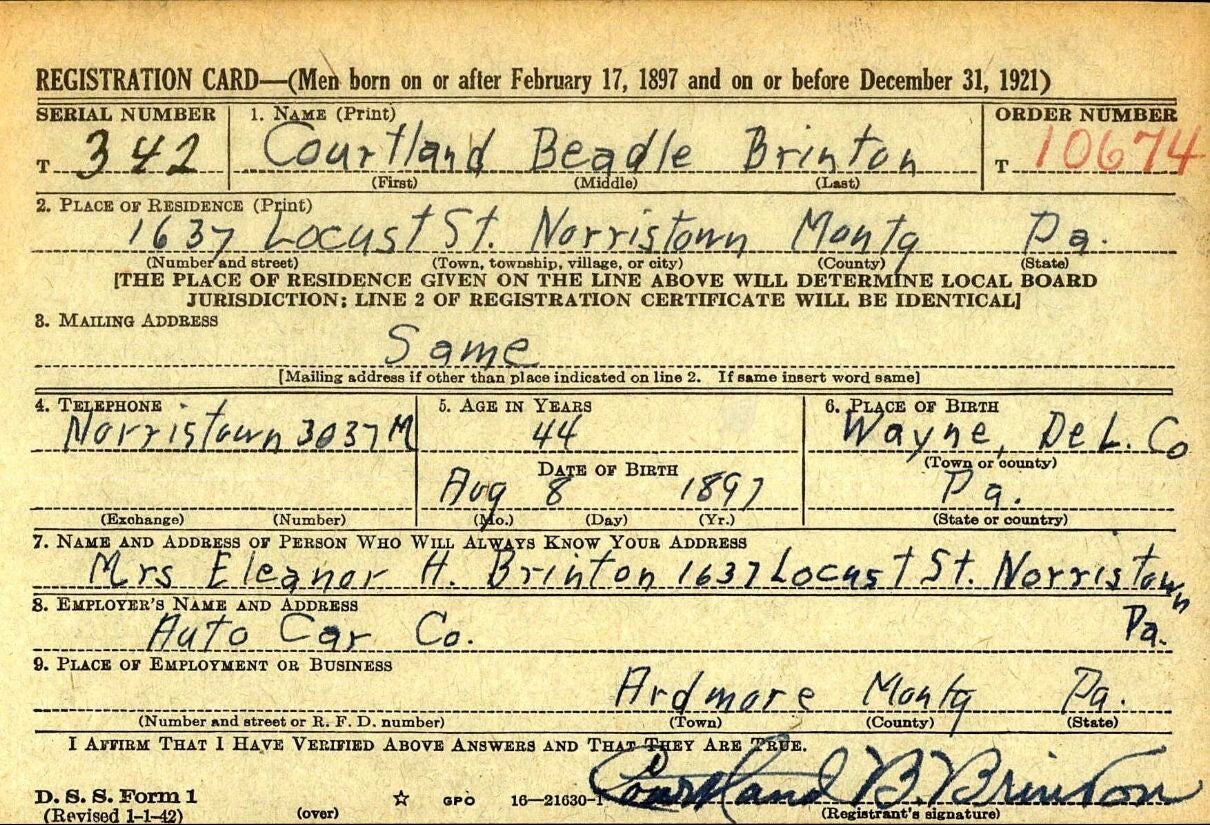 REGISTRATION CARD—(Men born on or after February 17, 1897 and on or before December 31, 1921)
SERIAL NUMBER 1. NAME (Print) ORDER NUMBER
T 342 Courtland Beadle Brinton T 10674
(First) (Middle) (Last)
2. PLACE OF RESIDENCE (Print)
1637 Locust St. Norristown Montg Pa.
(Number and street) (Town, township, village, or city) (County) (State)
[THE PLACE OF RESIDENCE GIVEN ON THE LINE ABOVE WILL DETERMINE LOCAL BOARD
JURISDICTION; LINE 2 OF REGISTRATION CERTIFICATE WILL BE IDENTICAL]
3. MAILING ADDRESS
Same
[Mailing address if other than place indicated on line 2. If same insert word same]
4. TELEPHONE 5. AGE IN YEARS 6. PLACE OF BIRTH
Norristown 3037 M 44 Wayne, Del. Co
DATE OF BIRTH (Town or county)
Aug 8 1897 Pa.
(Exchange) (Number) (Mo.) (Day) (Yr.) (State or country)
7. NAME AND ADDRESS OF PERSON WHO WILL ALWAYS KNOW YOUR ADDRESS
Mrs Eleanor H. Brinton 1637 Locust St. Norristown
8. EMPLOYER'S NAME AND ADDRESS
Auto Car Co. Pa.
9. PLACE OF EMPLOYMENT OR BUSINESS
Ardmore Montg Pa.
(Number and street or R. F. D. number) (Town) (County) (State)
I AFFIRM THAT I HAVE VERIFIED ABOVE ANSWERS AND THAT THEY ARE TRUE.
Courtland B. Brinton
D. S. S. Form 1 ☆ GPO 16—21630-1
(Revised 1-1-42) (over) (Registrant's signature)